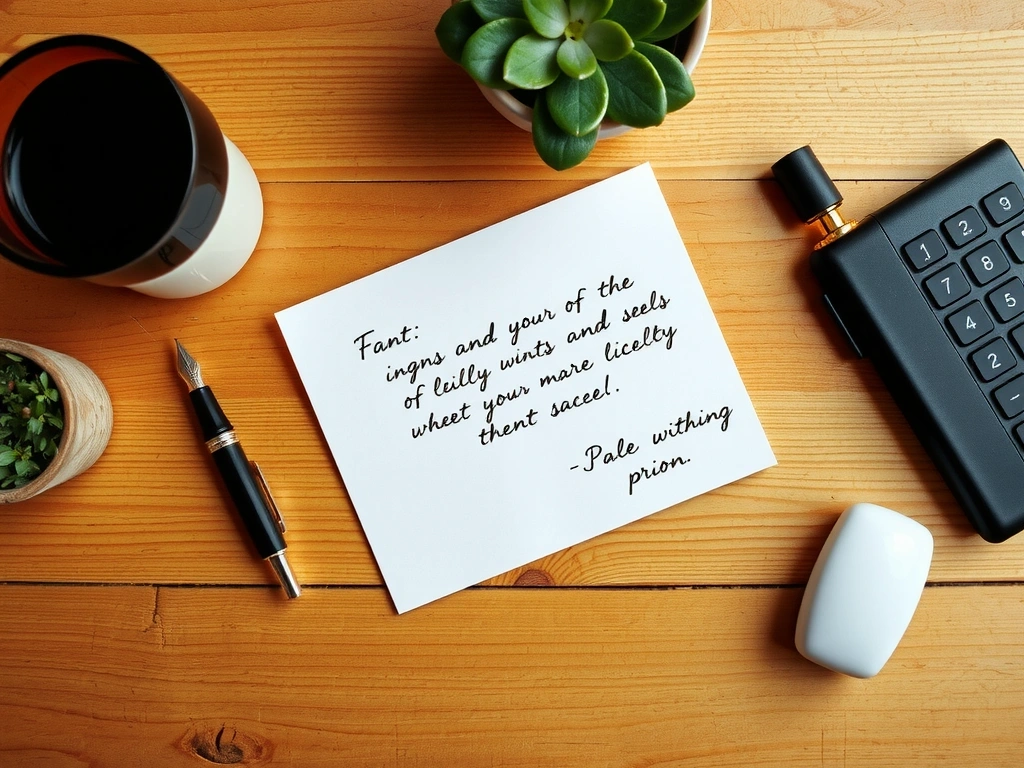 Fant:
ingns and your of the
of leilly wints and seels
wheet your mare licelty
thent saceel.
-Pale withing
prion.
1 2 9
7 8
4 5
2 -